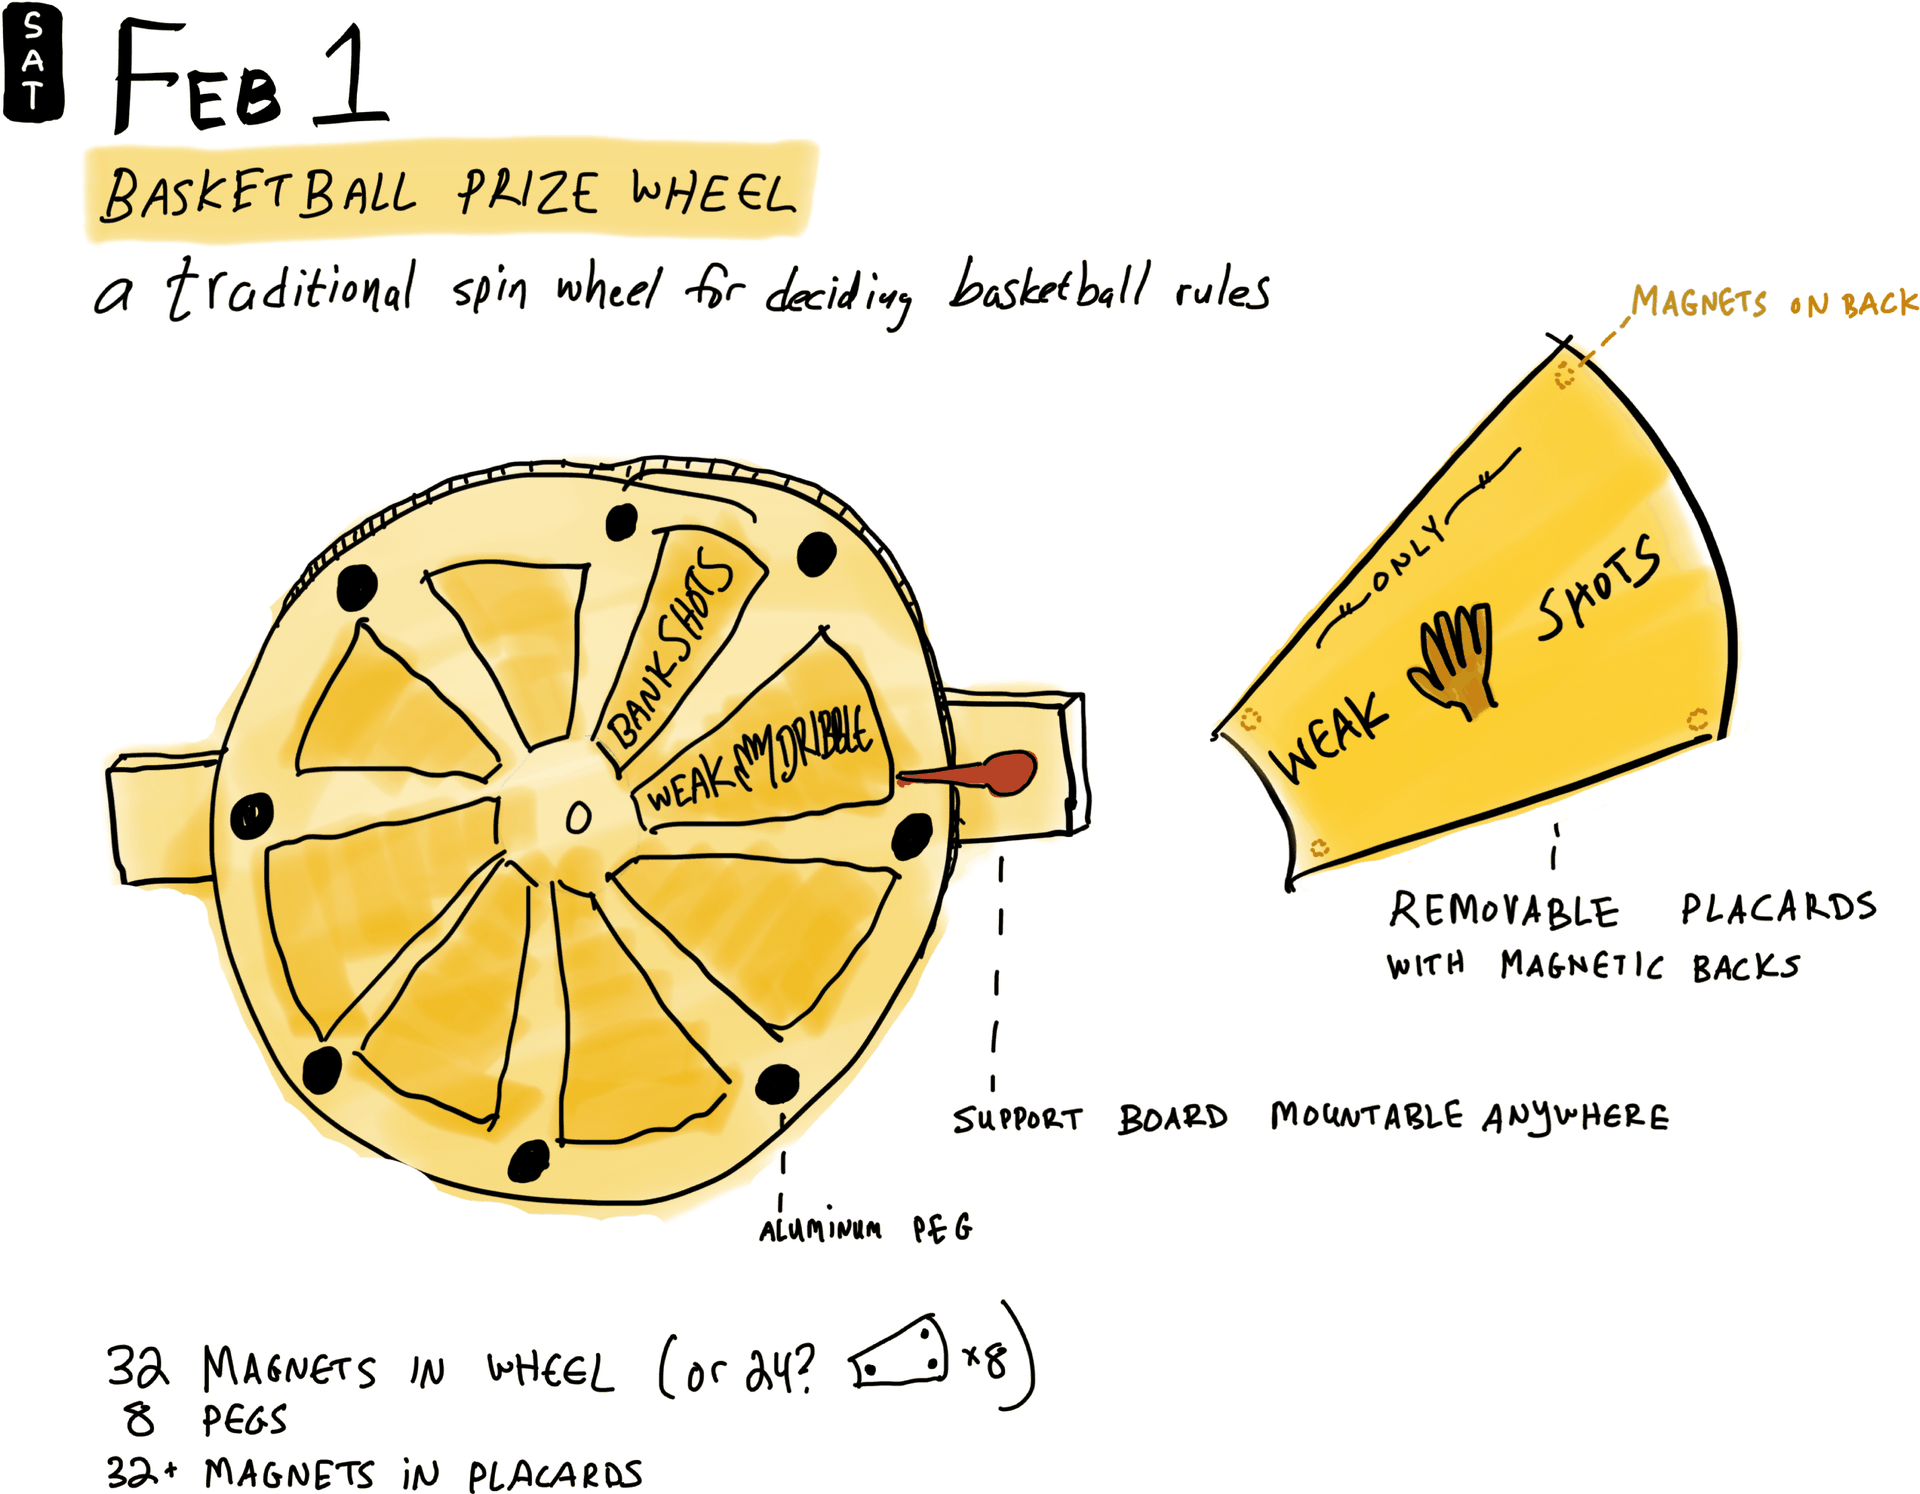 SAT
FEB 1
BASKETBALL PRIZE WHEEL
a traditional spin wheel for deciding basketball rules
MAGNETS ON BACK
ONLY
WEAK SHOTS
BANK SHOTS
WEAK DRIBBLE
REMOVABLE PLACARDS
WITH MAGNETIC BACKS
SUPPORT BOARD MOUNTABLE ANYWHERE
ALUMINUM PEG
32 MAGNETS IN WHEEL (or 24? x8)
8 PEGS
32+ MAGNETS IN PLACARDS